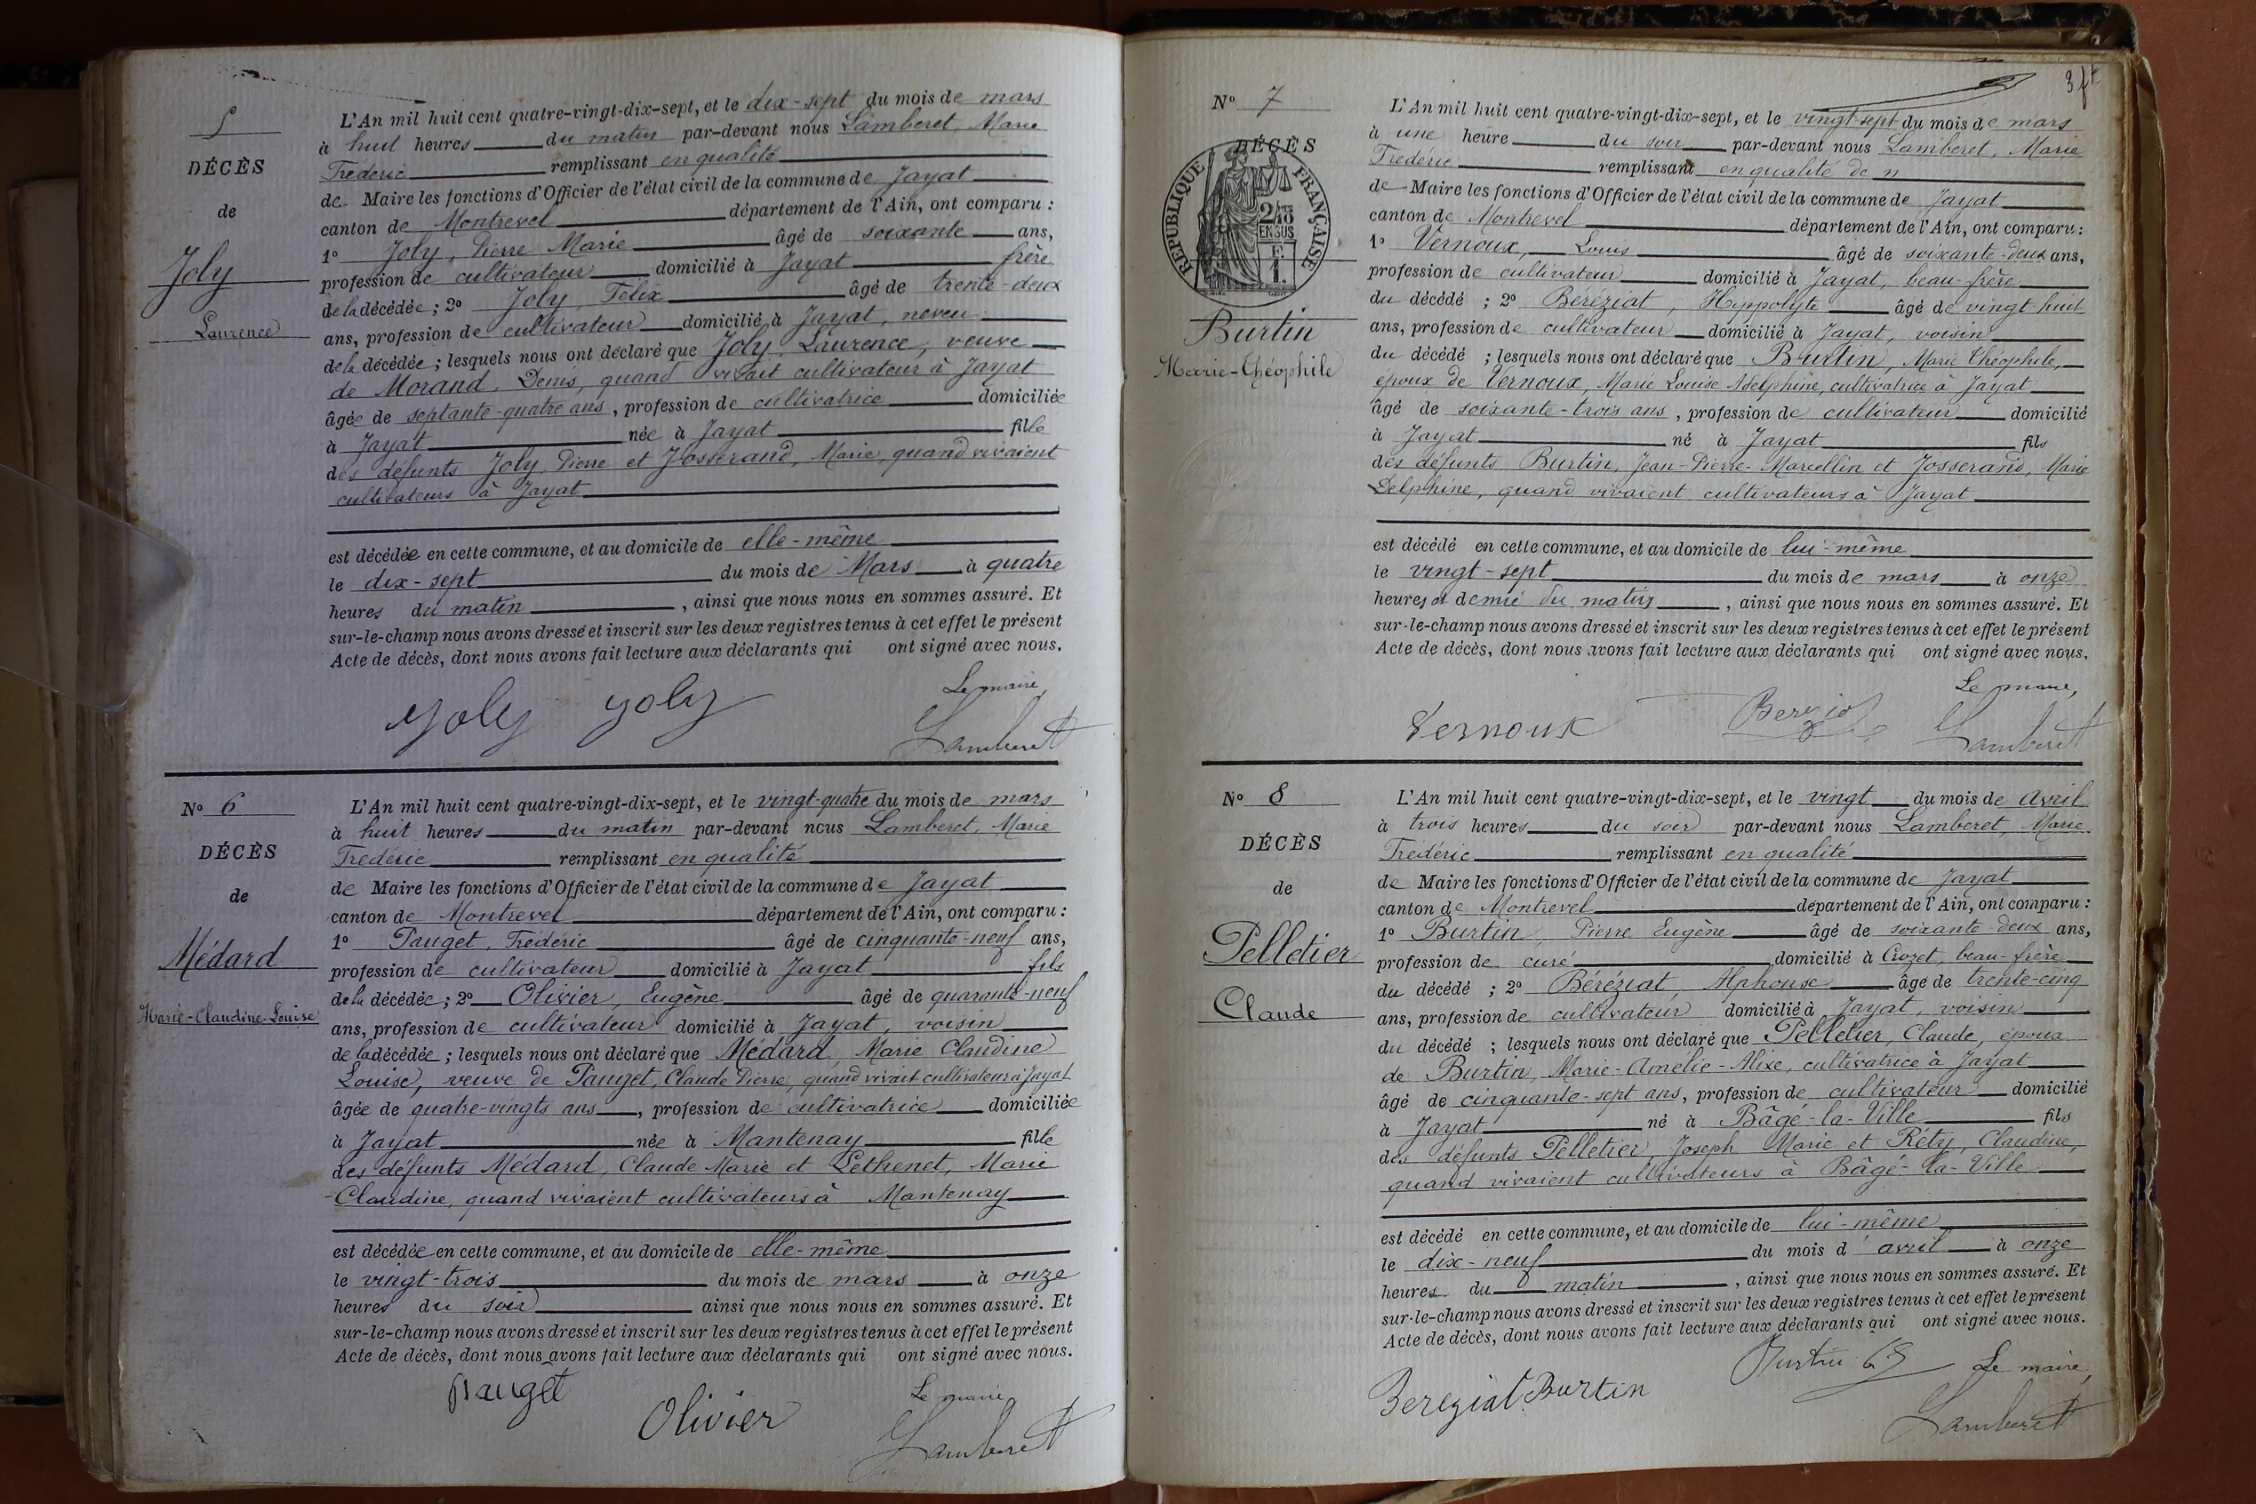 5
DÉCÈS
de
Joly
Laurence
L'An mil huit cent quatre-vingt-dix-sept, et le dix-sept du mois de mars
à huit heures du matin par-devant nous Lamberet, Marie
Frédéric remplissant en qualité
de Maire les fonctions d'Officier de l'état civil de la commune de Jayat
canton de Montrevel département de l'Ain, ont comparu :
1º Joly, Pierre Marie âgé de soixante ans,
profession de cultivateur domicilié à Jayat frère
de la décédée ; 2º Joly, Félix âgé de trente-deux
ans, profession de cultivateur domicilié à Jayat, neveu
de la décédée ; lesquels nous ont déclaré que Joly, Laurence, veuve
de Morand, Denis, quand vivait cultivateur à Jayat
âgée de septante-quatre ans, profession de cultivatrice domiciliée
à Jayat née à Jayat fille
des défunts Joly, Pierre et Josserand, Marie, quand vivaient
cultivateurs à Jayat
est décédée en cette commune, et au domicile de elle-même
le dix-sept du mois de Mars à quatre
heures du matin, ainsi que nous nous en sommes assuré. Et
sur-le-champ nous avons dressé et inscrit sur les deux registres tenus à cet effet le présent
Acte de décès, dont nous avons fait lecture aux déclarants qui ont signé avec nous.
Le maire,
Joly Joly Lamberet
Nº 6
DÉCÈS
de
Médard
Marie-Claudine-Louise
L'An mil huit cent quatre-vingt-dix-sept, et le vingt-quatre du mois de mars
à huit heures du matin par-devant nous Lamberet, Marie
Frédéric remplissant en qualité
de Maire les fonctions d'Officier de l'état civil de la commune de Jayat
canton de Montrevel département de l'Ain, ont comparu :
1º Pauget, Frédéric âgé de cinquante-neuf ans,
profession de cultivateur domicilié à Jayat fils
de la décédée ; 2º Olivier, Eugène âgé de quarante-neuf
ans, profession de cultivateur domicilié à Jayat, voisin
de la décédée ; lesquels nous ont déclaré que Médard, Marie Claudine
Louise, veuve de Pauget, Claude Pierre, quand vivait cultivateur à Jayat
âgée de quatre-vingts ans, profession de cultivatrice domiciliée
à Jayat née à Mantenay fille
des défunts Médard, Claude Marie et Pethenet, Marie
Claudine, quand vivaient cultivateurs à Mantenay
est décédée en cette commune, et au domicile de elle-même
le vingt-trois du mois de mars à onze
heures du soir ainsi que nous nous en sommes assuré. Et
sur-le-champ nous avons dressé et inscrit sur les deux registres tenus à cet effet le présent
Acte de décès, dont nous avons fait lecture aux déclarants qui ont signé avec nous.
Le maire
Pauget Olivier Lamberet
Nº 7
DÉCÈS
RÉPUBLIQUE FRANÇAISE
2/10
EN SUS
Burtin
Marie-Théophile
L'An mil huit cent quatre-vingt-dix-sept, et le vingt-sept du mois de mars
à une heure du soir par-devant nous Lamberet, Marie
Frédéric remplissant en qualité de n
de Maire les fonctions d'Officier de l'état civil de la commune de Jayat
canton de Montrevel département de l'Ain, ont comparu :
1º Vernoux, Louis âgé de soixante-deux ans,
profession de cultivateur domicilié à Jayat, beau-frère
du décédé ; 2º Béréziat, Hyppolyte âgé de vingt huit
ans, profession de cultivateur domicilié à Jayat, voisin
du décédé ; lesquels nous ont déclaré que Burtin, Marie Théophile,
époux de Vernoux, Marie Louise Adelphine, cultivatrice à Jayat
âgé de soixante-trois ans, profession de cultivateur domicilié
à Jayat né à Jayat fils
des défunts Burtin, Jean-Pierre-Marcellin et Josserand, Marie
Delphine, quand vivaient cultivateurs à Jayat
est décédé en cette commune, et au domicile de lui-même
le vingt-sept du mois de mars à onze
heures et demie du matin, ainsi que nous nous en sommes assuré. Et
sur-le-champ nous avons dressé et inscrit sur les deux registres tenus à cet effet le présent
Acte de décès, dont nous avons fait lecture aux déclarants qui ont signé avec nous.
Le maire,
Vernoux Lamberet
Nº 8
DÉCÈS
de
Pelletier
Claude
L'An mil huit cent quatre-vingt-dix-sept, et le vingt du mois de avril
à trois heures du soir par-devant nous Lamberet, Marie
Frédéric remplissant en qualité
de Maire les fonctions d'Officier de l'état civil de la commune de Jayat
canton de Montrevel département de l'Ain, ont comparu :
1º Burtin, Pierre Eugène âgé de soixante-deux ans,
profession de curé domicilié à Crozet, beau-frère
du décédé ; 2º Béréziat, Alphonse âgé de trente-cinq
ans, profession de cultivateur domicilié à Jayat, voisin
du décédé ; lesquels nous ont déclaré que Pelletier, Claude, époux
de Burtin, Marie-Amélie-Alix, cultivatrice à Jayat
âgé de cinquante-sept ans, profession de cultivateur domicilié
à Jayat né à Bâgé-la-Ville fils
des défunts Pelletier, Joseph Marie et Réty, Claudine,
quand vivaient cultivateurs à Bâgé-la-Ville
est décédé en cette commune, et au domicile de lui-même
le dix-neuf du mois d'avril à onze
heures du matin, ainsi que nous nous en sommes assuré. Et
sur-le-champ nous avons dressé et inscrit sur les deux registres tenus à cet effet le présent
Acte de décès, dont nous avons fait lecture aux déclarants qui ont signé avec nous.
Le maire,
Bereziat Burtin Burtin Lamberet